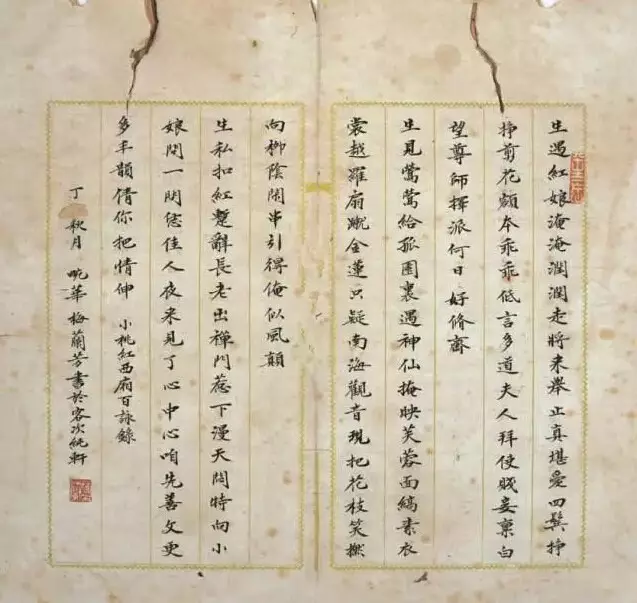 生遇紅娘淹淹潤潤走將来舉止真堪愛四鬓挣
挣剪花顔本乖乖低言多道夫人拜使賤妾禀白
望尊師揮派何日好脩齋
生見鶯鶯給孤園裏遇神仙掩映芙蓉面縞素衣
裳越羅扇蹴金蓮只疑南海觀音現把花枝笑撚
向柳陰閑串引得俺似風顛
生私扣紅蹔辭長老出禪門惹下漫天悶特向小
娘問一問恁佳人夜来見了心中心咱先善文更
多丰韻倩你把情伸 小桃紅西廂百詠錄
丁 秋月 畹華梅蘭芳書於客次純軒